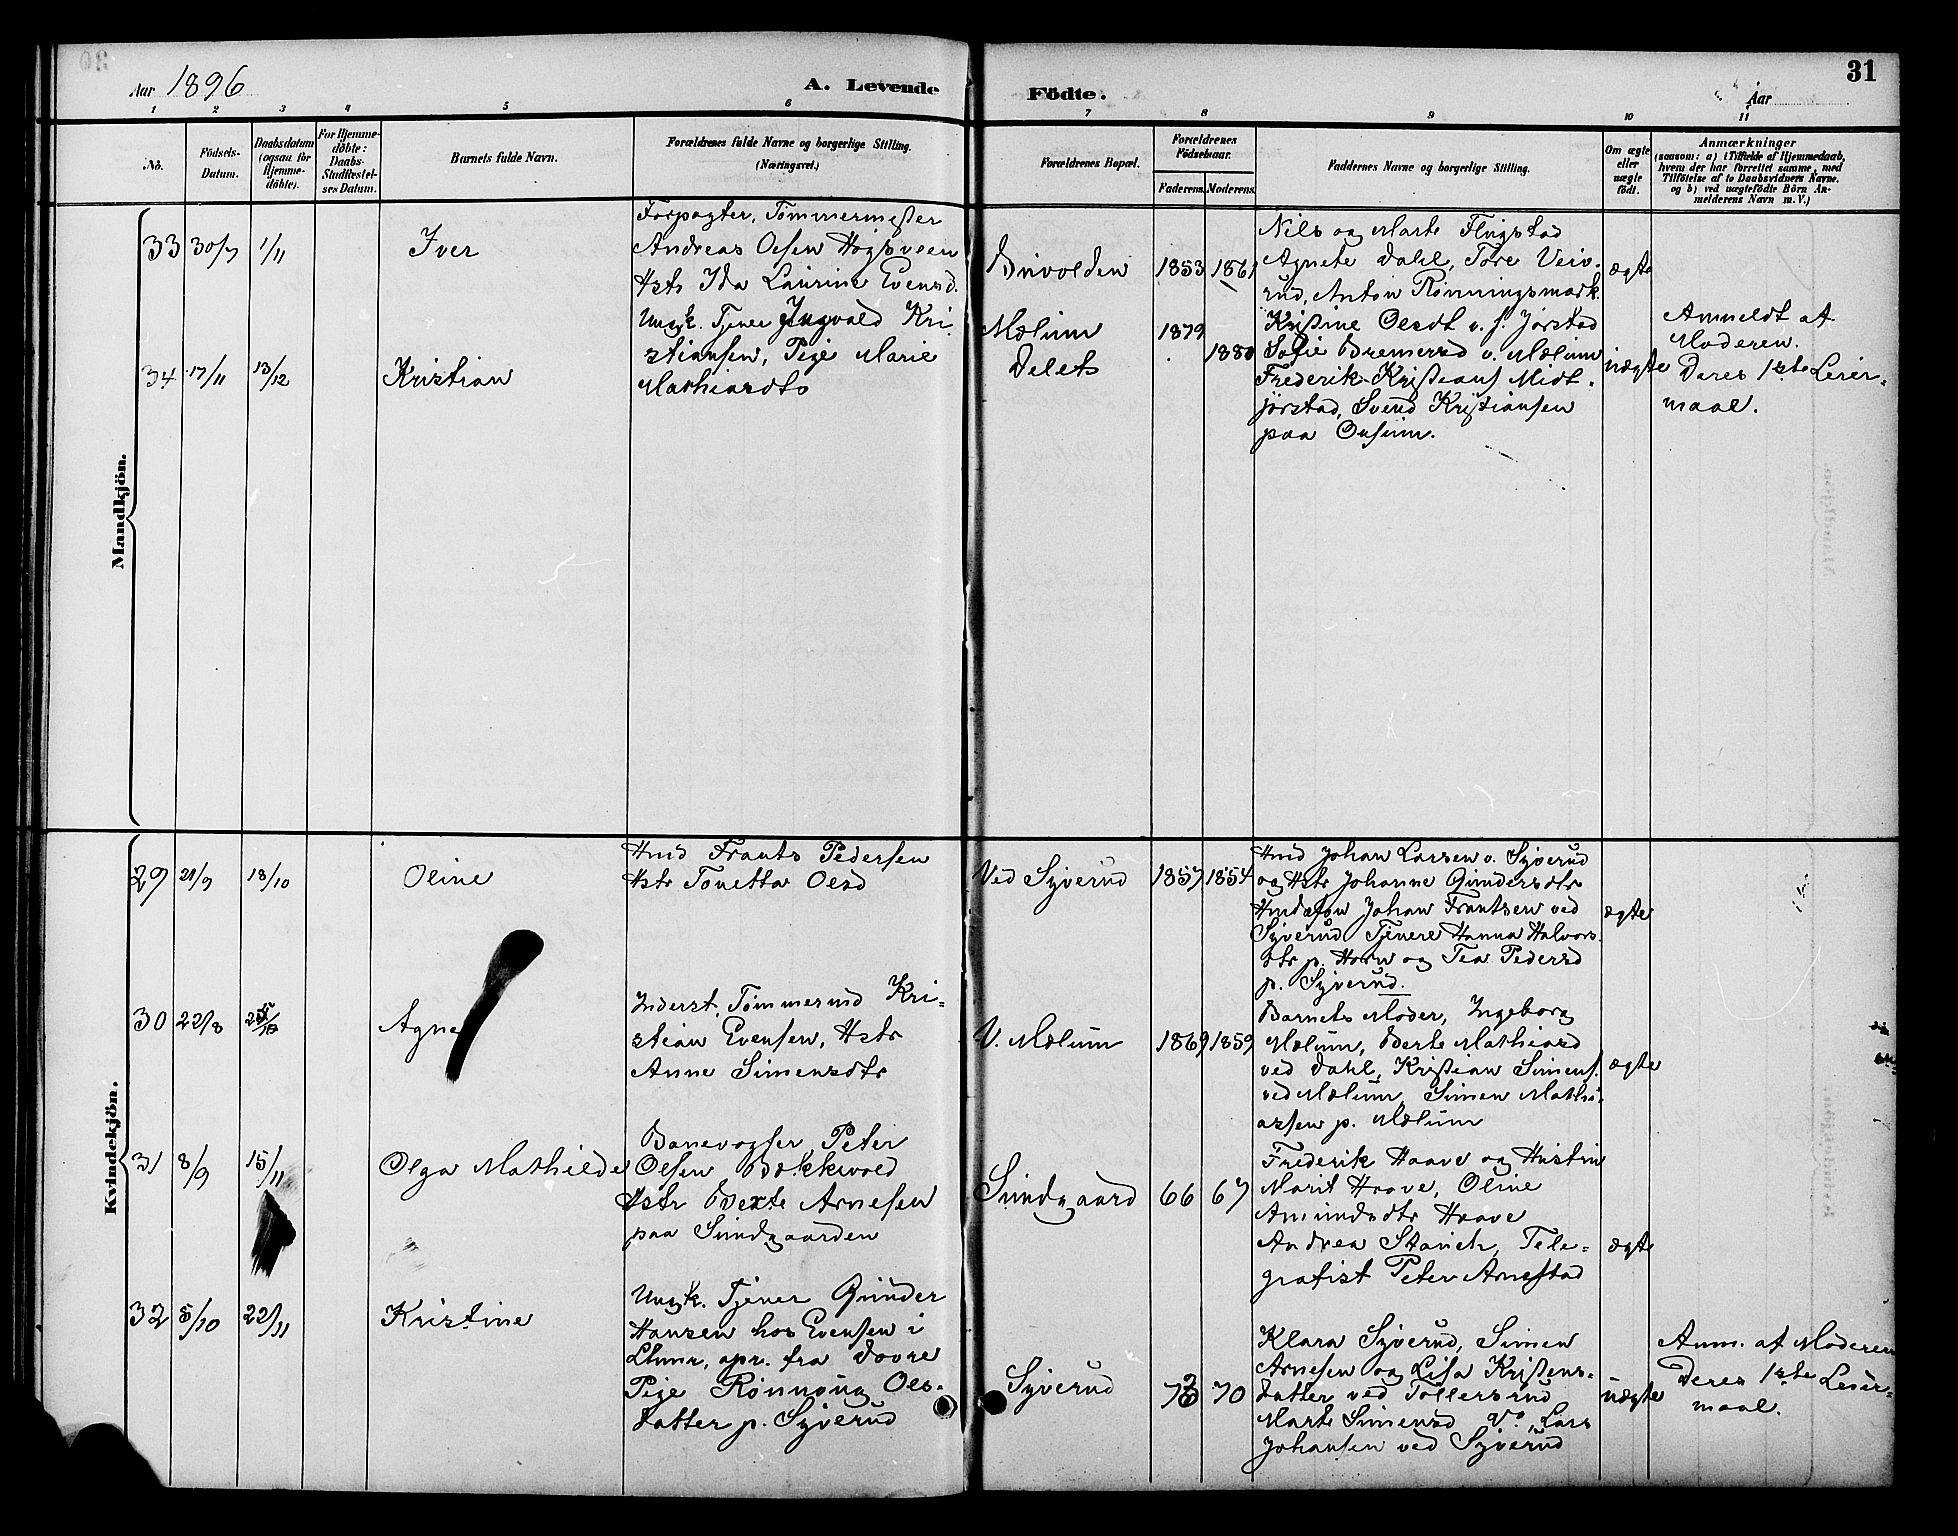 31
Aar 1896
A. Levende
Födte.
Aar
1 2 3 4 5 6 7 8 9 10 11
No.
Födsels-
Datum.
Daabsdatum
(ogsaa for
Hjemme-
döbte).
For Hjemme-
döbte:
Daabs-
Stadfæstel-
ses Datum.
Barnets fulde Navn.
Forældrenes fulde Navne og borgerlige Stilling.
(Næringsvei.)
Forældrenes Bopæl.
Forældrenes
Födselsaar.
Faderens.
Moderens.
Faddernes Navne og borgerlige Stilling.
Om ægte
eller
uægte
födt.
Anmærkninger
(saasom: a) i Tilfælde af Hjemmedaab,
hvem der har forrettet samme, med
Tilföielse af to Daabsvidners Navne.
og b) ved uægtefödte Börn An-
melderens Navn m. V.)
Mandkjön.
33 30/7 1/11
Iver
Forpagter, Tømmermester
Andreas Olsen Høgsveen
Hstr Ida Laurine Evensd.
1853 1861
Nils og Marte Flugstad
Agnete Dahl, Tore Veiv-
rud, Anton Rønningsmark.
ægte
34 17/11 13/12
Kristian
Ungk. Tjener Ingvald Kri-
stiansen, Pige Marie
Mathiasdtr
Mælum
Delets
1879
1880
Kristine Olsdt v. f. Jørstad
Sofie Bremersd v. Mælum
Frederik Kristians Midt-
jørstad, Svend Kristiansen
paa Onsum.
uægte
Anmeldt af
Moderen.
Deres 1ste Leier-
maal.
Kvindekjön.
29 21/9 18/10
Oline
Hmd Frants Pedersen
Hstr Tonetta Olsd
Ved Syverud
1857 1854
Hmd Johan Larsen v. Syverud
og Hstr Johanne Gundersdtr
Hmdsøn Johan Frantsen ved
Syverud Tjenere Hanna Halvors
dtr p. Horn og Tea Pedersd
p. Syverud.
ægte
30 22/8
Agne
Inderst, Tømmermd Kri-
stian Evensen, Hstr
Anne Simensdtr
V. Mælum
1869 1859
Barnets Moder, Ingeborg
Mælum, Berte Mathiasd
ved Dahl, Kristian Simens.
ved Mælum, Simen Mathi-
assen p. Mælum
ægte
31 8/9 15/11
Olga Mathilde
Banevogter Peter
Olsen Bækkevold
Hstr Berte Arnesen
paa Sundgaarden
Sundgaard
66 67
Frederik Haave og Hustru
Marit Haave, Oline
Amundsdtr Haave
Andrea Stanch, Tele-
grafist Peter Arnestad
ægte
32 5/10 22/11
Kristine
Ungk. Tjener Gunder
Hansen hos Evensen i
Lhmr, opr. fra Dovre
Pige Rønnaug Ols-
datter p. Syverud
Syverud
73 70
Klara Syverud, Simen
Arnesen og Lisa Kristens-
datter ved Tollersrud
Marte Simensd V., Lars
Johansen ved Syverud
uægte
Anm. af Moderen
Deres 1ste Leier-
maal.